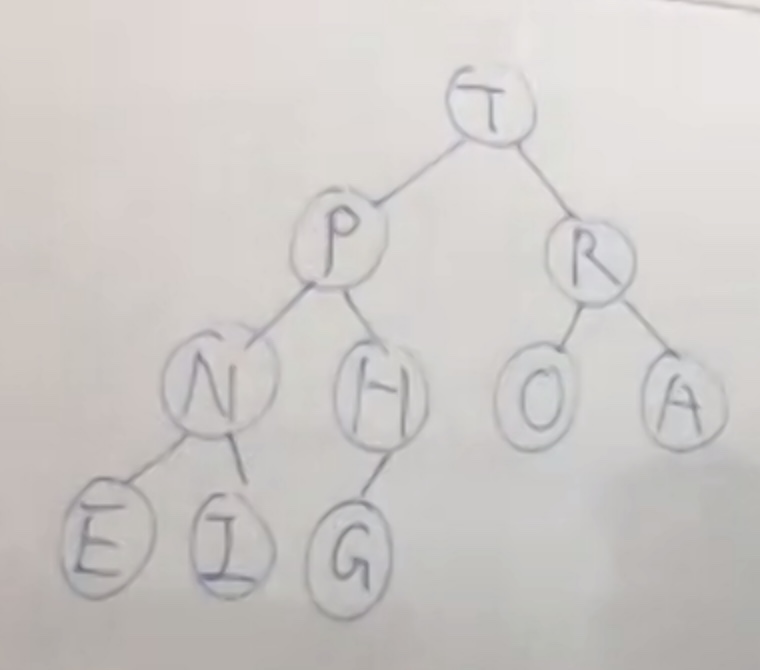 T
P R
N H O A
E I G